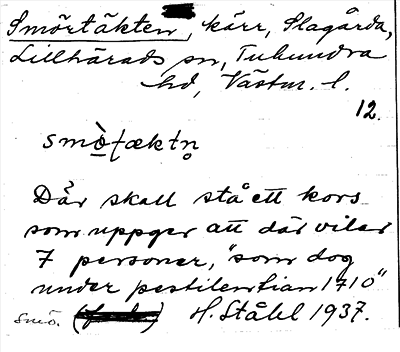 Smörtäkten, kärr, Slagårda,
Lillhärads sn, Tuhundra
hd, Västm. l.
12.
smö̀ṭæktn̥
Där skall stå ett kors
som uppger att där vilar
7 personer, "som dog
under pestilentian 1710"
smö. H. Ståhl 1937.